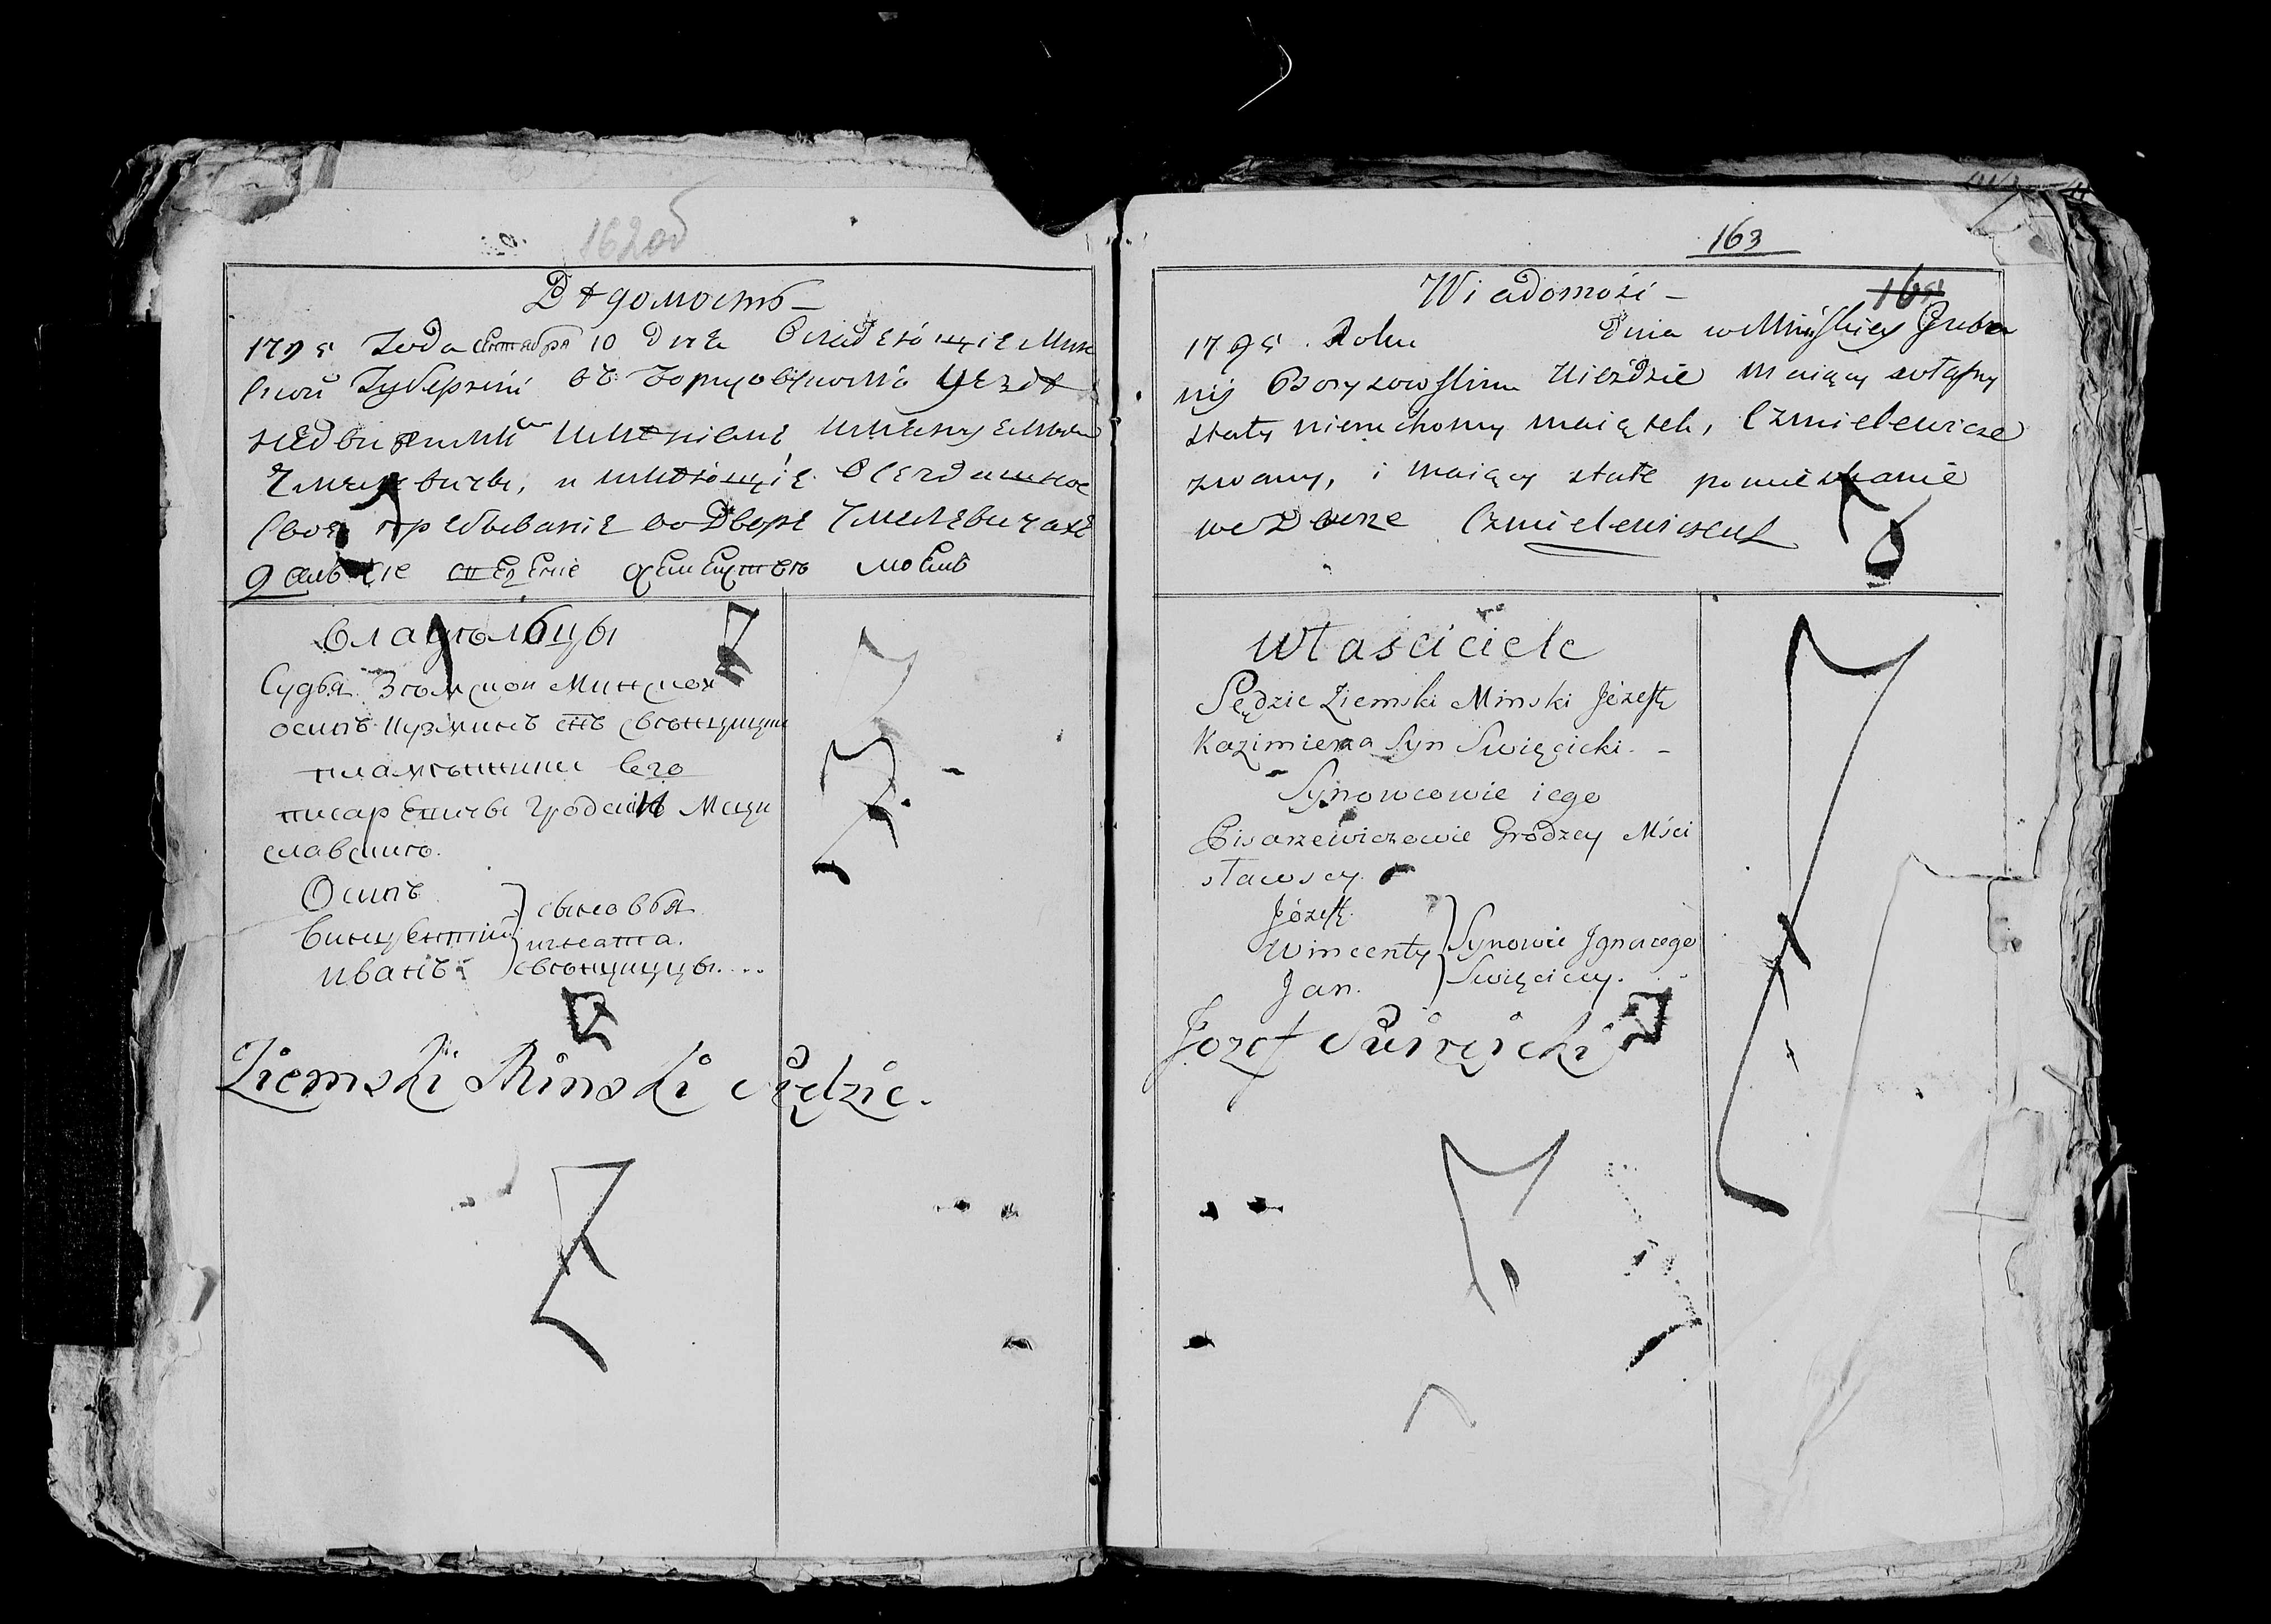 162 об
Вѣдомость
1795 Года Сентября 10 Дня Владеющіе Минс
кой Губерніи въ Борисовскомъ Уезде
недвижимымъ имѣніемъ
Чмелевичи, и имѣющіе
свое пребываніе во Дворе Чмелевичахъ
владельцы
Судья Земской Минской
осипъ Кузминъ снъ свенцицки
племенники Его
писаревичы Гродские Мсци
славские
Осипъ
винцентій } сыновья
иванъ } игната
свенциццы....
Ziemski Minski Sędzie.
163
Wiadomośi
1795 Roku Dnia w Minskiey Guber
nij Borysowskim Uiezdzie Maiący własny
stały nieruchomy maiątek, Czmielewicze
zwany, i maiący stałe pomieszkanie
we Dworze Czmielewiczach
właściciele
Sędzie Ziemski Minski Józeff
Kazimierza Syn Swięcicki.
Synowcowie iego
Pisarzewiczowie Grodzcy Mści
sławscy.
Józeff.
Wincenty } Synowie Ignacego
Jan. } Swięciccy.
Jozef Swięcicki